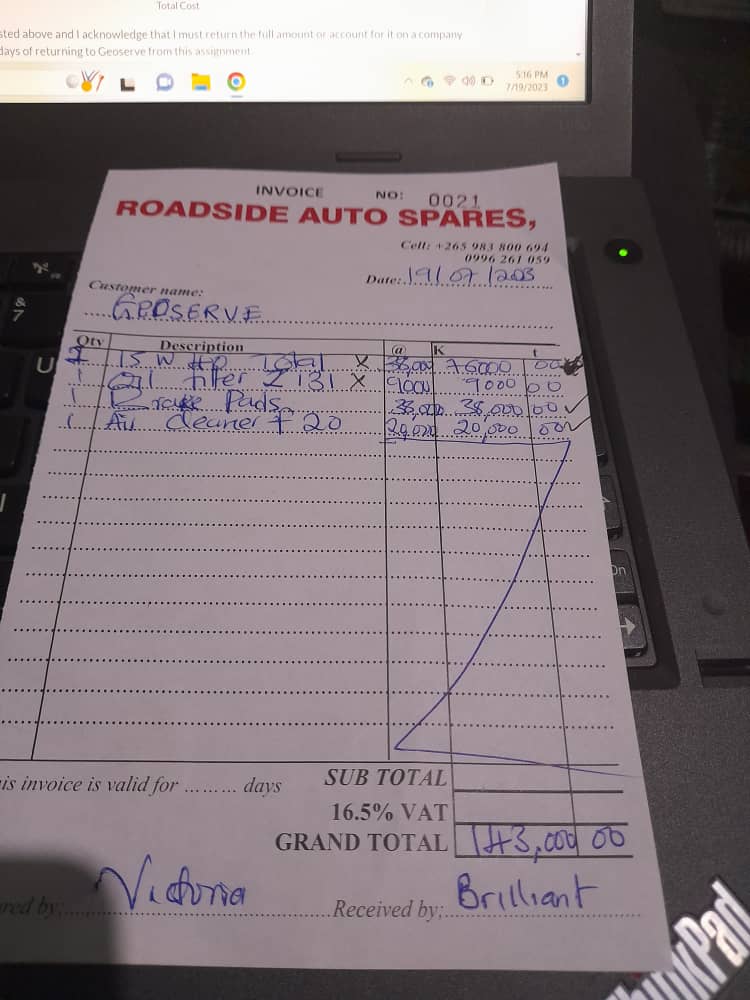 Total Cost
sted above and I acknowledge that I must return the full amount or account for it on a company
days of returning to Geoserve from this assignment
5:16 PM
7/19/2023
INVOICE NO: 0021
ROADSIDE AUTO SPARES,
Cell: +265 983 800 694
0996 261 059
Date: 19/07/203
Customer name:
GEOSERVE
Qty Description @ K t
2 15W 40 Total X 38,000 76000 00
1 Oil filter Z 131 X 9000 9000 00
1 Brake Pads 38,000 38,000 00 ✓
1 Air cleaner F 20 20,000 20,000 00 ✓
is invoice is valid for ......... days
SUB TOTAL
16.5% VAT
GRAND TOTAL 143,000 00
red by: Victoria Received by: Brilliant
& 7
U
On
ThinkPad